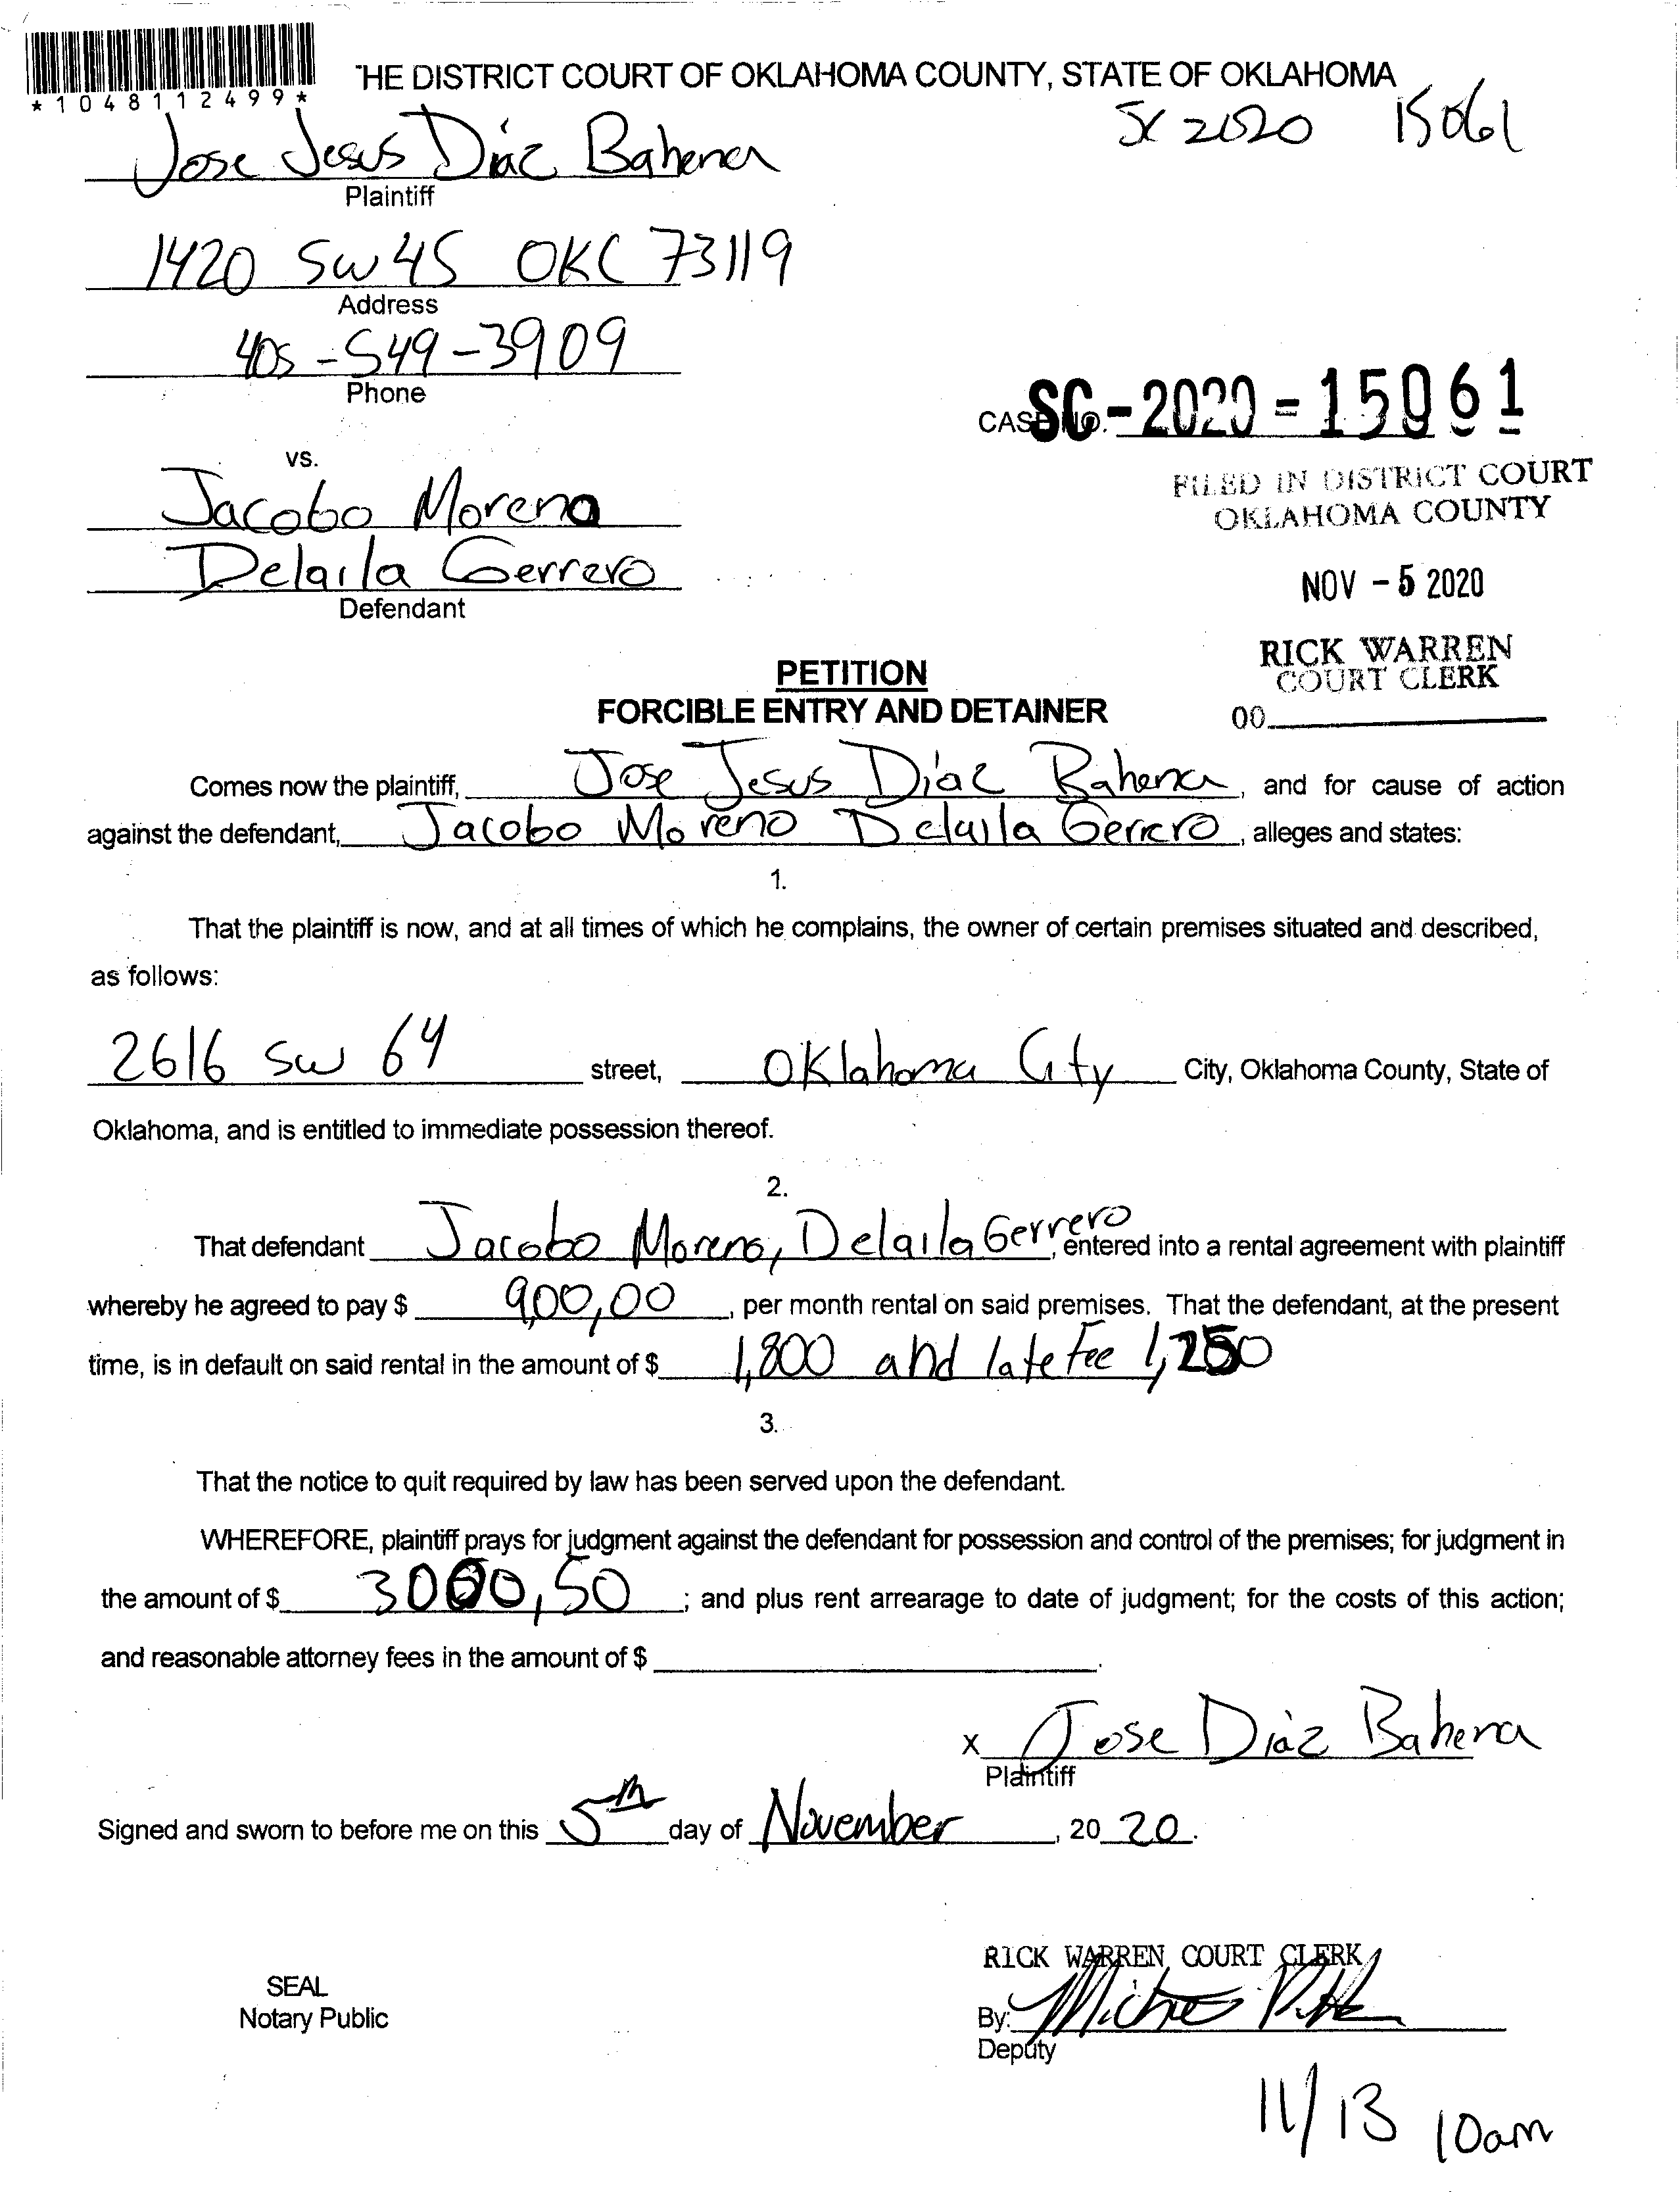 *1048112499*
THE DISTRICT COURT OF OKLAHOMA COUNTY, STATE OF OKLAHOMA
SC 2020 15061
Jose Jesus Diaz Bahena
Plaintiff
1420 SW 45 OKC 73119
Address
405-549-3909
Phone
CASE NO. SC-2020-15061
vs.
FILED IN DISTRICT COURT
OKLAHOMA COUNTY
Jacobo Moreno
Delaila Gerrero
NOV -5 2020
Defendant
RICK WARREN
COURT CLERK
00
PETITION
FORCIBLE ENTRY AND DETAINER
Comes now the plaintiff, Jose Jesus Diaz Bahena, and for cause of action
against the defendant, Jacobo Moreno Delaila Gerrero, alleges and states:
1.
That the plaintiff is now, and at all times of which he complains, the owner of certain premises situated and described,
as follows:
2616 SW 64 street, Oklahoma City City, Oklahoma County, State of
Oklahoma, and is entitled to immediate possession thereof.
2.
That defendant Jacobo Moreno, Delaila Gerrero, entered into a rental agreement with plaintiff
whereby he agreed to pay $ 900,00, per month rental on said premises. That the defendant, at the present
time, is in default on said rental in the amount of $ 1,800 and late Fee 1,250
3.
That the notice to quit required by law has been served upon the defendant.
WHEREFORE, plaintiff prays for judgment against the defendant for possession and control of the premises; for judgment in
the amount of $ 3000,50; and plus rent arrearage to date of judgment; for the costs of this action;
and reasonable attorney fees in the amount of $ .
X Jose Diaz Bahena
Plaintiff
Signed and sworn to before me on this 5th day of November, 20 20.
RICK WARREN COURT CLERK
SEAL
Notary Public
By:
Deputy
11/13 10am